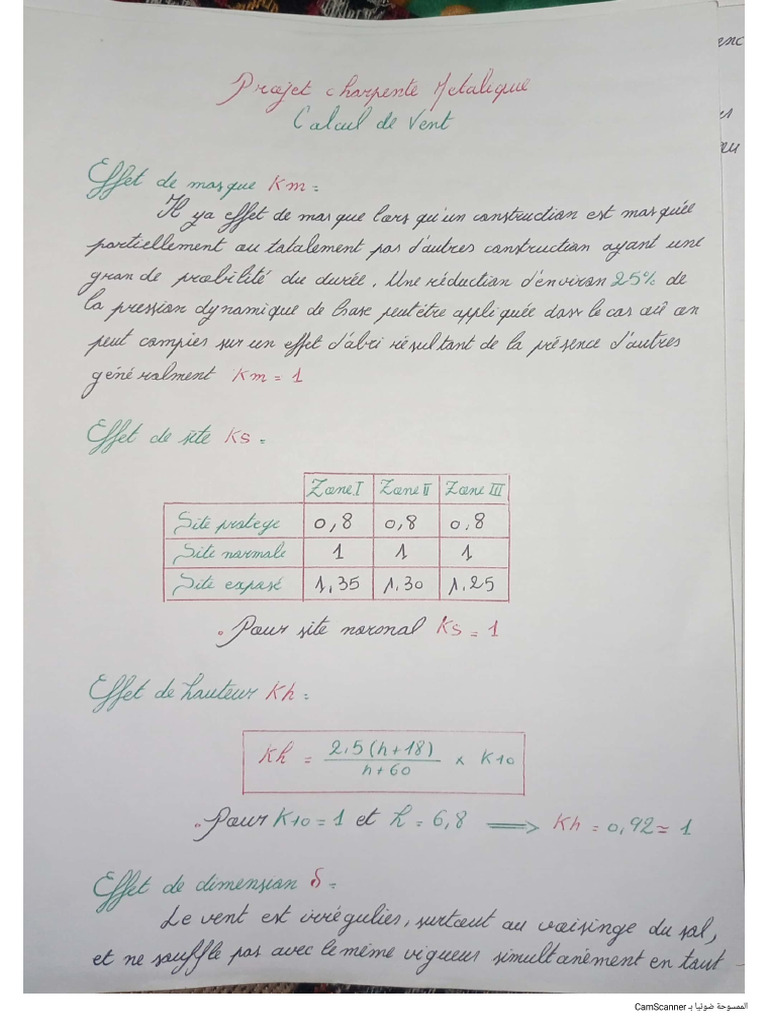 Projet charpente Metalique
Calcul de Vent
Effet de masque Km =
Il ya effet de masque lors qu'un construction est masquée
partiellement ou totalement pas d'autres construction ayant une
grande probilité du durée. Une réduction d'environ 25% de
la pression dynamique de base peut être appliquée dans le cas où on
peut compies sur un effet d'abri résultant de la présence d'autres
généralment Km = 1
Effet de site Ks =
Zone I Zone II Zone III
Site protege 0,8 0,8 0,8
Site normale 1 1 1
Site exposé 1,35 1,30 1,25
. Pour site normal Ks = 1
Effet de hauteur Kh =
Kh = 2,5(h+18) / h+60 x K10
. Pour K10 = 1 et h = 6,8 ⟹ Kh = 0,92 ≃ 1
Effet de dimension δ =
Le vent est irrégulies, surtout au voisinge du sol,
et ne souffle pas avec le même vigueur simultanément en tout
CamScanner الممسوحة ضوئيا بـ